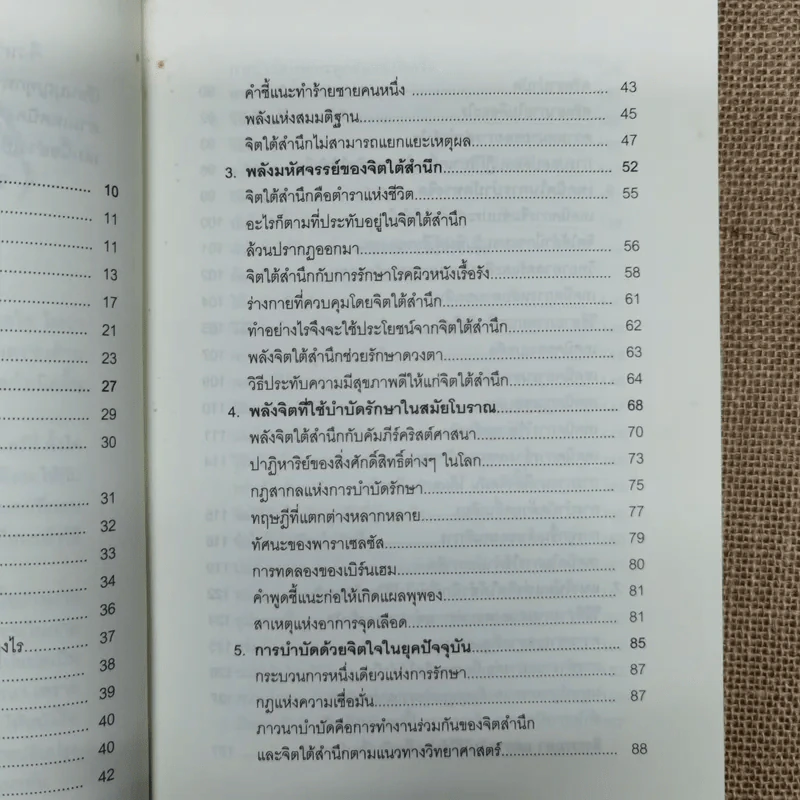 10
11
11
13
17
21
23
27
29
30
31
32
33
34
36
งไร 37
38
39
40
40
42
คำชี้แนะทำร้ายชายคนหนึ่ง 43
พลังแห่งสมมติฐาน 45
จิตใต้สำนึกไม่สามารถแยกแยะเหตุผล 47
3. พลังมหัศจรรย์ของจิตใต้สำนึก 52
จิตใต้สำนึกคือตำราแห่งชีวิต 55
อะไรก็ตามที่ประทับอยู่ในจิตใต้สำนึก
ล้วนปรากฏออกมา 56
จิตใต้สำนึกกับการรักษาโรคผิวหนังเรื้อรัง 58
ร่างกายที่ควบคุมโดยจิตใต้สำนึก 61
ทำอย่างไรจึงจะใช้ประโยชน์จากจิตใต้สำนึก 62
พลังจิตใต้สำนึกช่วยรักษาดวงตา 63
วิธีประทับความมีสุขภาพดีให้แก่จิตใต้สำนึก 64
4. พลังจิตที่ใช้บำบัดรักษาในสมัยโบราณ 68
พลังจิตใต้สำนึกกับคัมภีร์คริสต์ศาสนา 70
ปาฏิหาริย์ของสิ่งศักดิ์สิทธิ์ต่างๆ ในโลก 73
กฎสากลแห่งการบำบัดรักษา 75
ทฤษฎีที่แตกต่างหลากหลาย 77
ทัศนะของพาราเซลซัส 79
การทดลองของเบิร์นเฮม 80
คำพูดชี้แนะก่อให้เกิดแผลพุพอง 81
สาเหตุแห่งอาการจุดเลือด 81
5. การบำบัดด้วยจิตใจในยุคปัจจุบัน 85
กระบวนการหนึ่งเดียวแห่งการรักษา 87
กฎแห่งความเชื่อมั่น 87
ภาวนาบำบัดคือการทำงานร่วมกันของจิตสำนึก
และจิตใต้สำนึกตามแนวทางวิทยาศาสตร์ 88